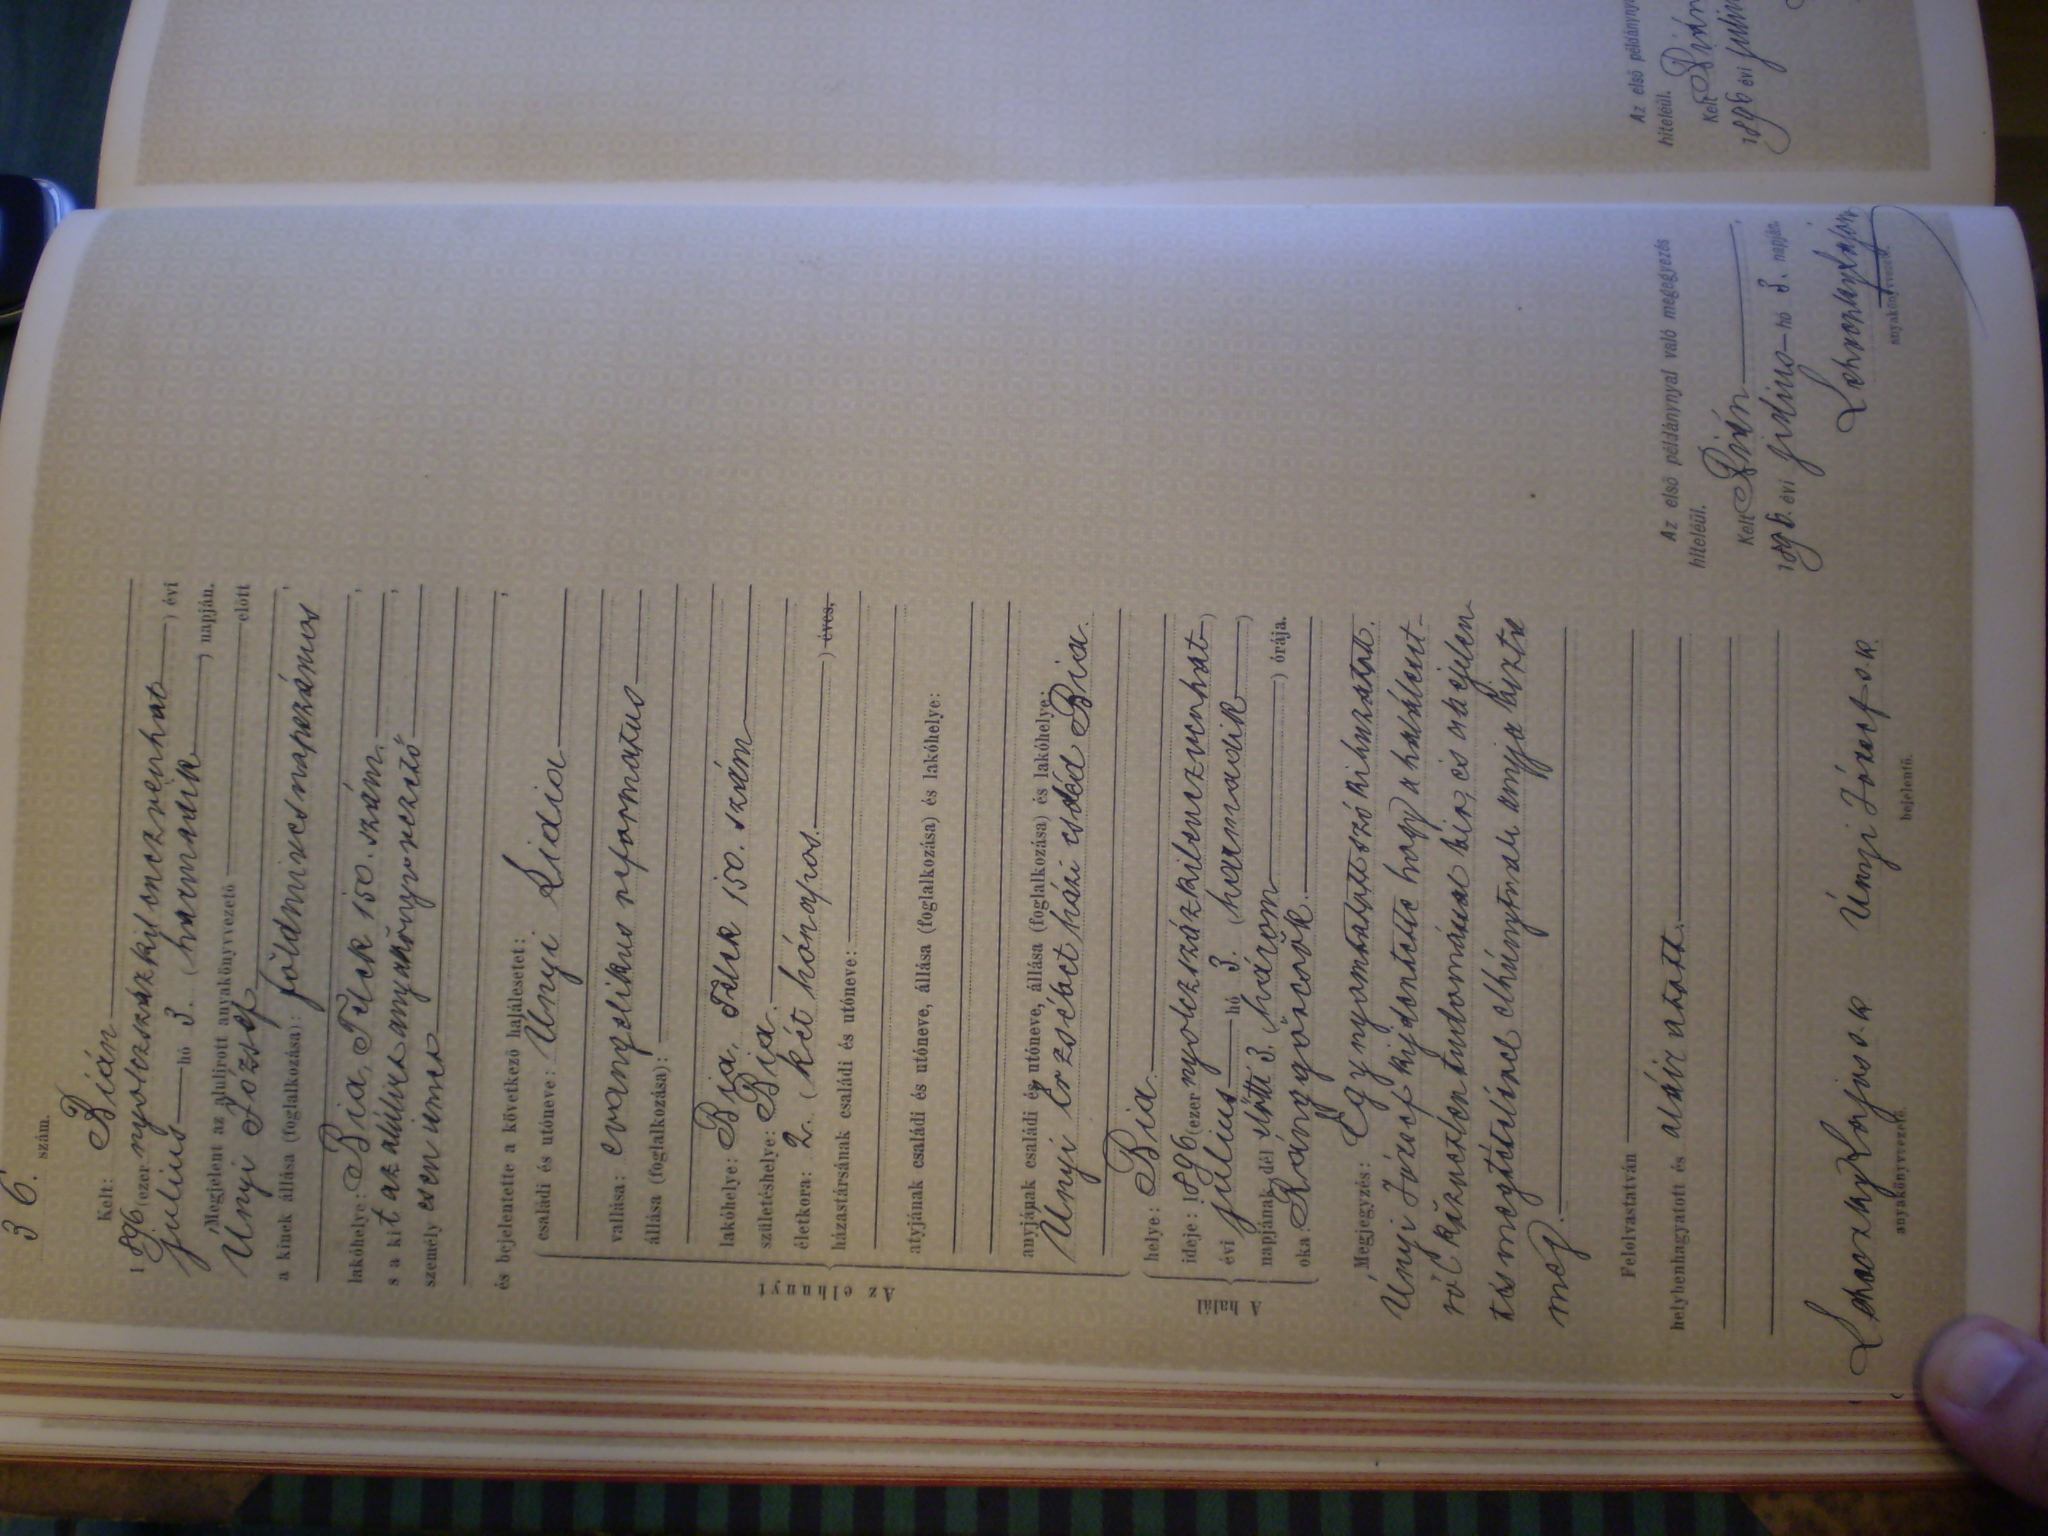 36. szám.
Kelt: Bián
1896 (ezer nyolczszázkilenczvenhat) évi
julius hó 3. (harmadik) napján.
Megjelent az alulirott anyakönyvvezető előtt
Únyi József,
a kinek állása (foglalkozása): földmives napszámos
lakóhelye: Bia, Telek 150. szám,
s a kit az alúlírt anyakönyvvezető,
személyesen ismer
és bejelentette a következő halálesetet:
Az elhunyt
családi és utóneve: Únyi Lidia
vallása: evangelikus reformatus
állása (foglalkozása):
lakóhelye: Bia, Telek 150. szám
születéshelye: Bia.
életkora: 2. (két hónapos.) éves,
házastársának családi és utóneve:
atyjának családi és utóneve, állása (foglalkozása) és lakóhelye:
anyjának családi és utóneve, állása (foglalkozása) és lakóhelye:
Únyi Erzsébet házi cseléd Bia.
A halál
helye: Bia.
ideje: 1896 (ezer nyolczszázkilenczvenhat)
évi julius hó 3. (harmadik)
napjának dél előtti 3. (három) órája.
oka: Ránggörcsök.
Megjegyzés: Egy nyomtatott szó kihuzatott.
Únyi József kijelentette hogy a haláleset-
ről közvetlen tudomással bír, és
elhúnytnak anyja bízta
meg.
Felolvastatván
helybenhagyatott és aláír atott.
Lajos s.k
anyakönyvvezető.
Únyi József s.k.
bejelentő.
Az első példánynyal való megegyezés
hiteléül.
Kelt Bián,
1896. évi julius hó 3. napján.
anyakönyvvezető.
Az első példányny
hiteléül.
Kelt Bián
1896 évi